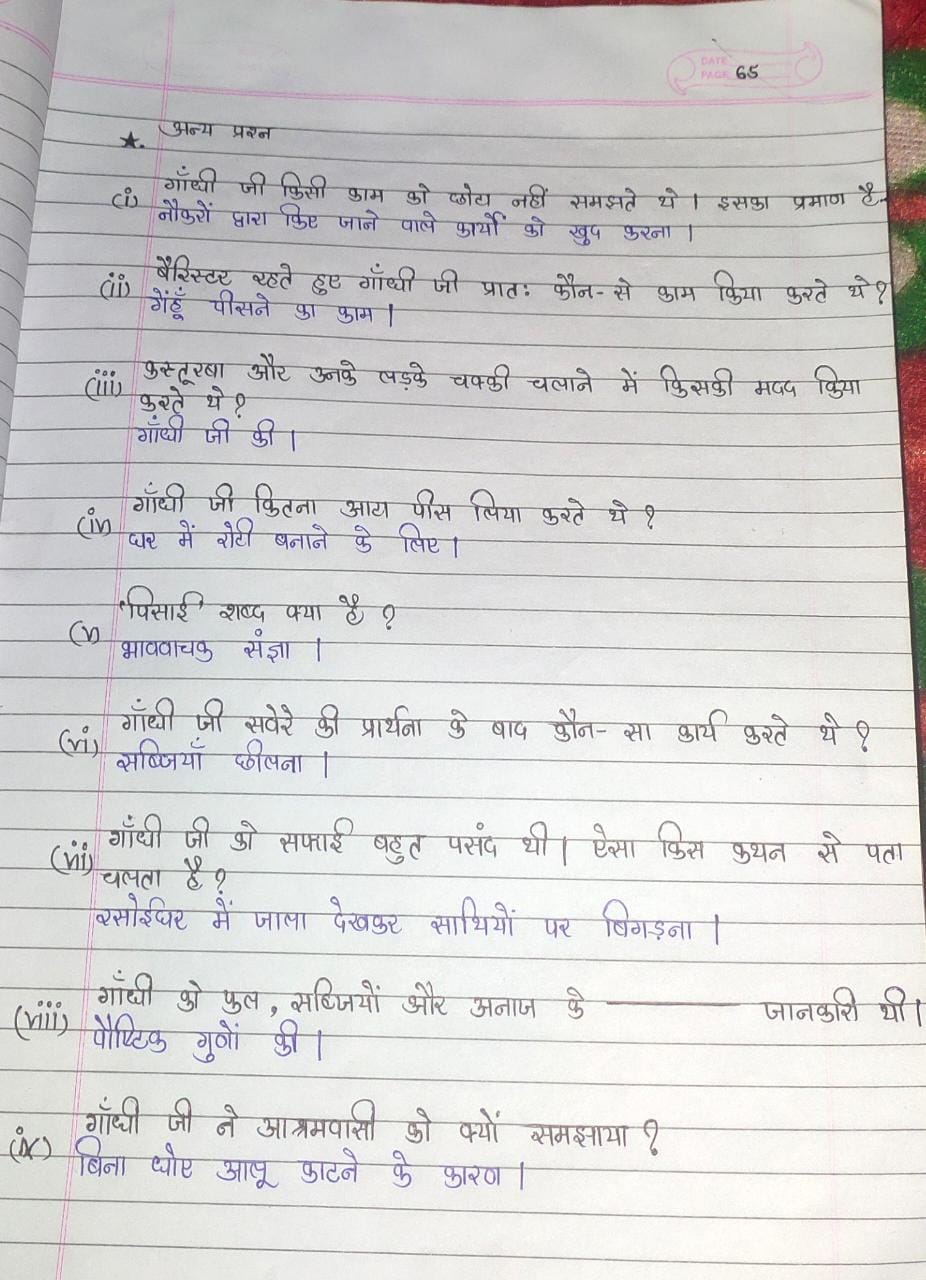 DATE
PAGE 65
★. अन्य प्रश्न
(i) गाँधी जी किसी काम को छोटा नहीं समझते थे। इसका प्रमाण है-
नौकरों द्वारा किए जाने वाले कार्यों को खुद करना।
(ii) बैरिस्टर रहते हुए गाँधी जी प्रातः कौन-से काम किया करते थे?
गेंहूँ पीसने का काम।
(iii) कस्तूरबा और उनके लड़के चक्की चलाने में किसकी मदद किया
करते थे?
गाँधी जी की।
(iv) गाँधी जी कितना आटा पीस लिया करते थे?
घर में रोटी बनाने के लिए।
(v) 'पिसाई' शब्द क्या है?
भाववाचक संज्ञा।
(vi) गाँधी जी सवेरे की प्रार्थना के बाद कौन-सा कार्य करते थे?
सब्जियाँ छीलना।
(vii) गाँधी जी को सफाई बहुत पसंद थी। ऐसा किस कथन से पता
चलता है?
रसोईघर में जाला देखकर साथियों पर बिगड़ना।
(viii) गाँधी को फुल, सब्जियों और अनाज के ——— जानकारी थी।
पौष्टिक गुनों की।
(ix) गाँधी जी ने आश्रमवासी को क्यों समझाया?
बिना धोए आलू काटने के कारण।